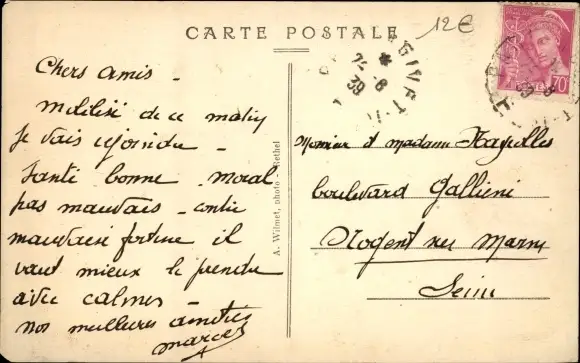 CARTE POSTALE
12€
GIVET
39
70
Chers amis -
mobilisé de ce matin
je vais rejoindre -
Santé bonne - moral
pas mauvais - contre
mauvaise fortune il
vaut mieux le prendre
avec calme -
nos meilleures amitiés
Marcel
A. Wilmet, photo - Rethel
Monsieur et madame
boulevard Galliéni
Nogent sur Marne
Seine